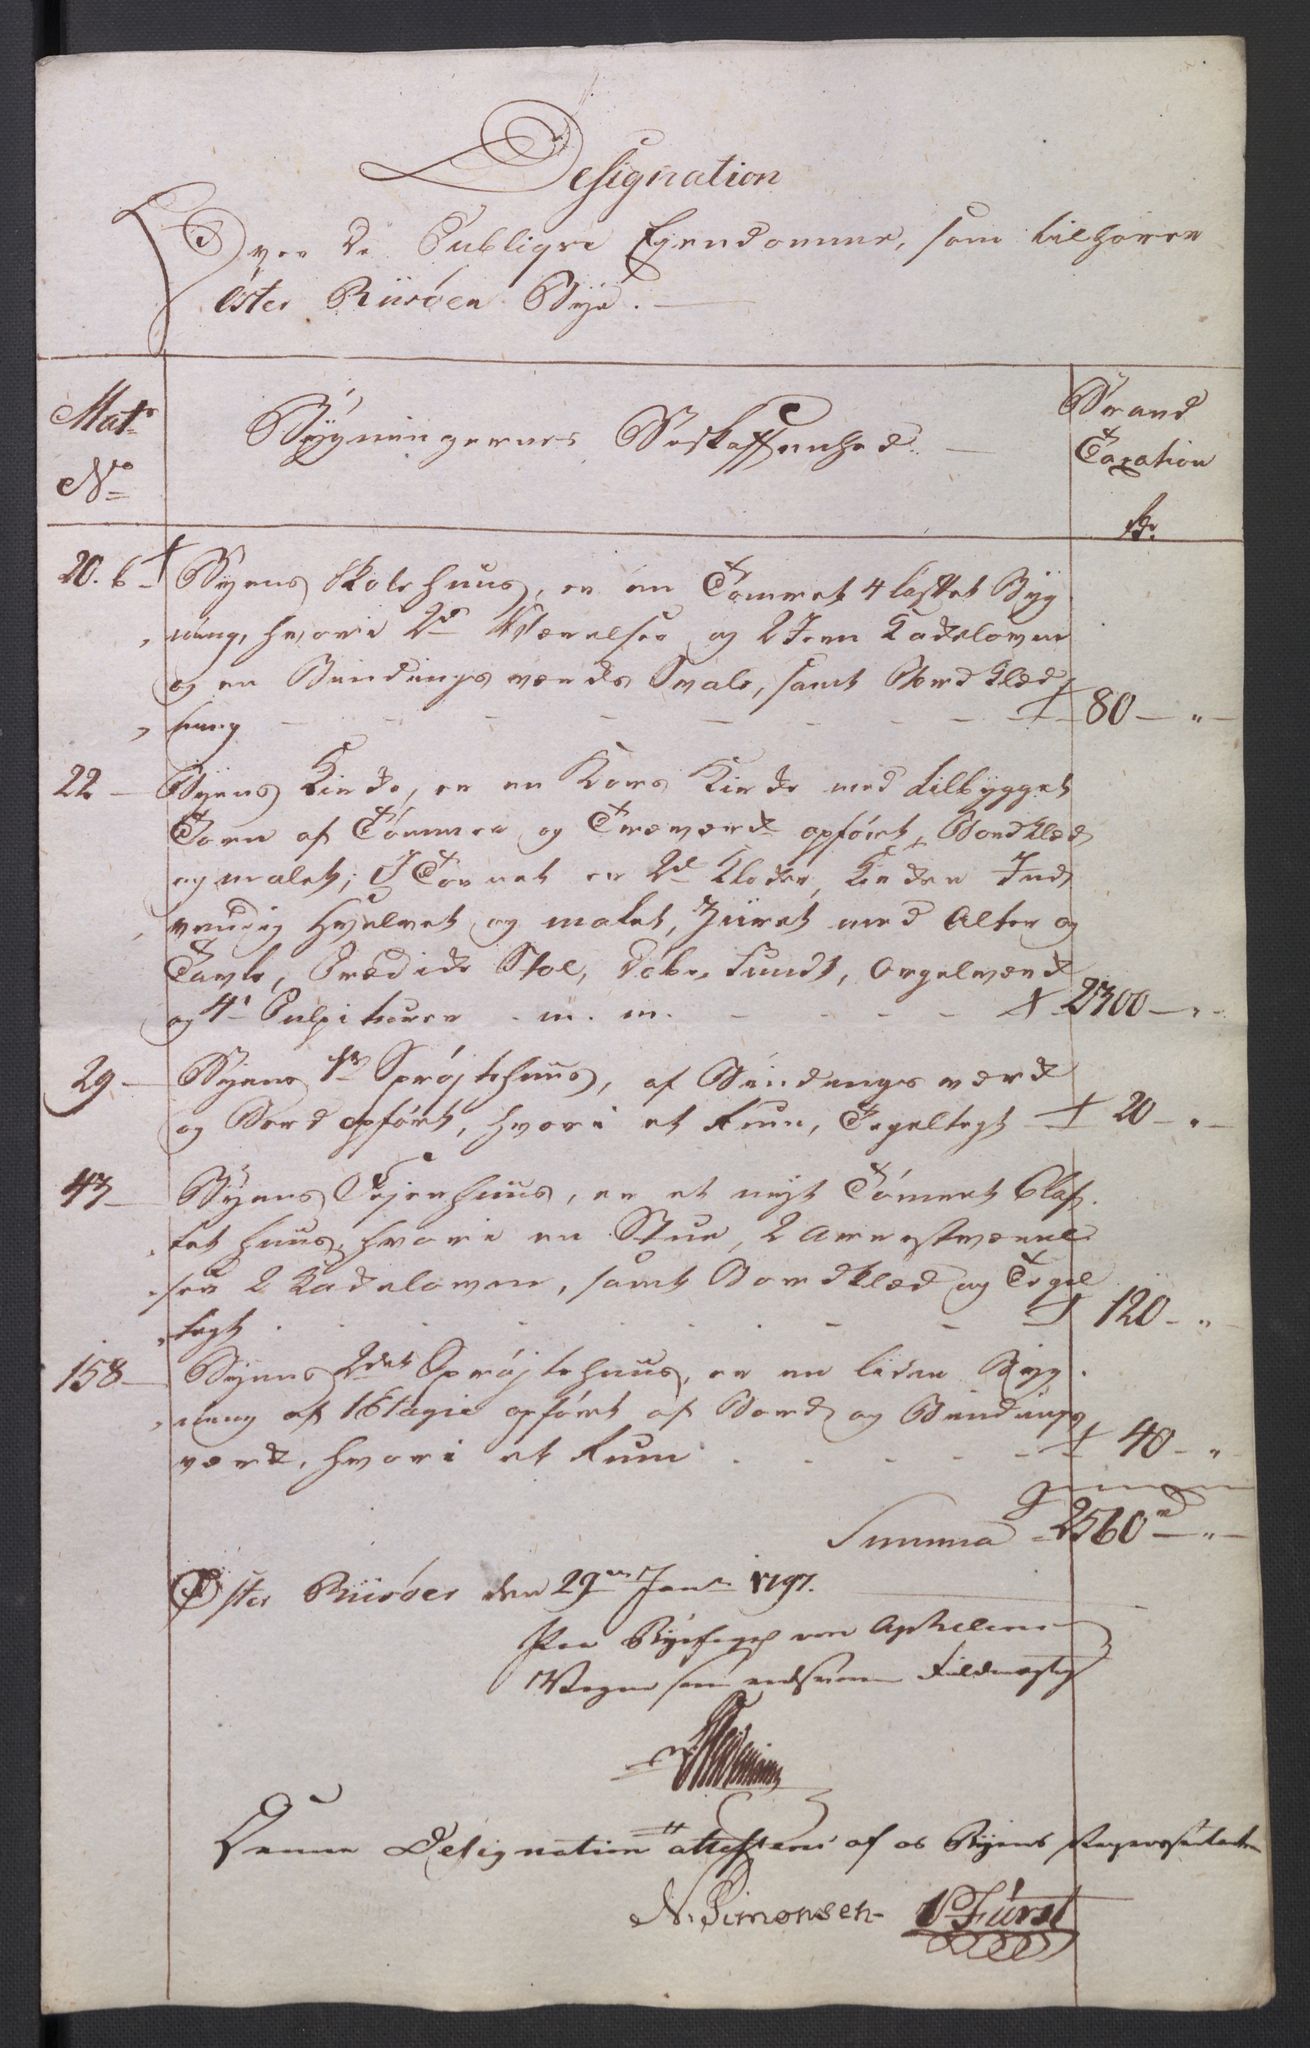 Designation
Over de Publiqve Ejendomme, som tilhører
Øster Riisøer Bye.
Matr
No
Bygningernes Beskaffenhed.
Brand
Taxation
Rdr.
20. b Byens Skolehuus, er en Tømret 4 laftet Byg
ning, hvori 2de Værelser og 2 Jern Kakelovne
og en Bindingsværks Sval, samt Bord Klæd
ning 80 "
22 Byens Kirke, er en Kors Kirke med tilbygget
Torn af Tømmer og Træværk opført, Bordklæd
og malet; I Tornet er 2de Klokker, Kirken Ind
vendig Hvelvet og malet, Ziiret med Alter og
Tavle, Prædike Stol, Døbe Fundt, Orgelværk
og 4 Pulpiturer m. m. 2300 "
29 Byens 1te Sprøjtehuus, af Bindingsværk
og Bord opført, hvori et Rum, Tegeltegt 20 "
43 Byens Tejenhuus, er et nyt Tømret 6 laf
tet huus, hvori en Stue, 2 Arrestværel
ser 2 Kakelovne, samt Bordklæd og Tegel
tegt 120 "
158 Byens 2det Sprøjtehuus, er en liden Byg
ning af 1 Etagie opført af Bord og Bindings
værk, hvori et Rum 40 "
Summa 2560 rd "
Øster Riisøer den 29en Janr 1797.
Paa Byefoged von Aphelens
Vegne som Fuldmægtig
Denne Designation attesteres af os Byens Repræsentanter
N. Simonsen P Fürst